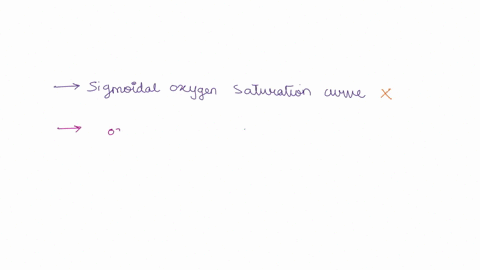 → Sigmoidal oxygen saturation curve X
→